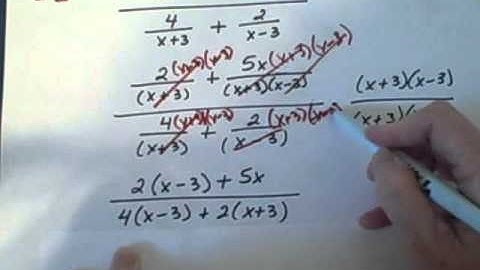 4/(x+3) + 2/(x-3)
2(x+3)(x-3)/(x+3) + 5x(x+3)(x-3)/((x+3)(x-3))
4(x+3)(x-3)/(x+3) + 2(x+3)/(x-3)
(x+3)(x-3)/(x+3)
2(x-3) + 5x
4(x-3) + 2(x+3)